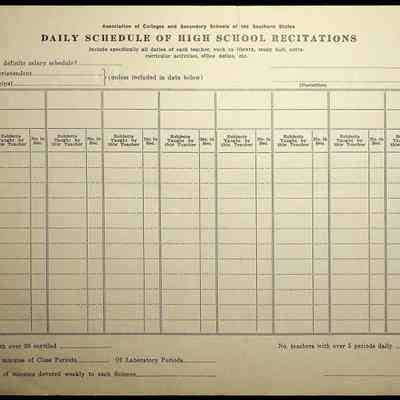 Association of Colleges and Secondary Schools of the Southern States
DAILY SCHEDULE OF HIGH SCHOOL RECITATIONS
Include specifically all duties of each teacher, such as library, study hall, extra-
curricular activities, office duties, etc.
definite salary schedule?
(unless included in data below)
Subjects Taught by this Teacher No. in Rec. Subjects Taught by this Teacher No. in Rec. Subjects Taught by this Teacher No. in Rec. Subjects Taught by this Teacher No. in Rec. Subjects Taught by this Teacher No. in Rec. Subjects Taught by this Teacher No. in Rec. Subjects Taught by this Teacher
over 30 enrolled
No. teachers with over 5 periods daily
minutes of Class Periods
Of Laboratory Periods
of minutes devoted weekly to each Science